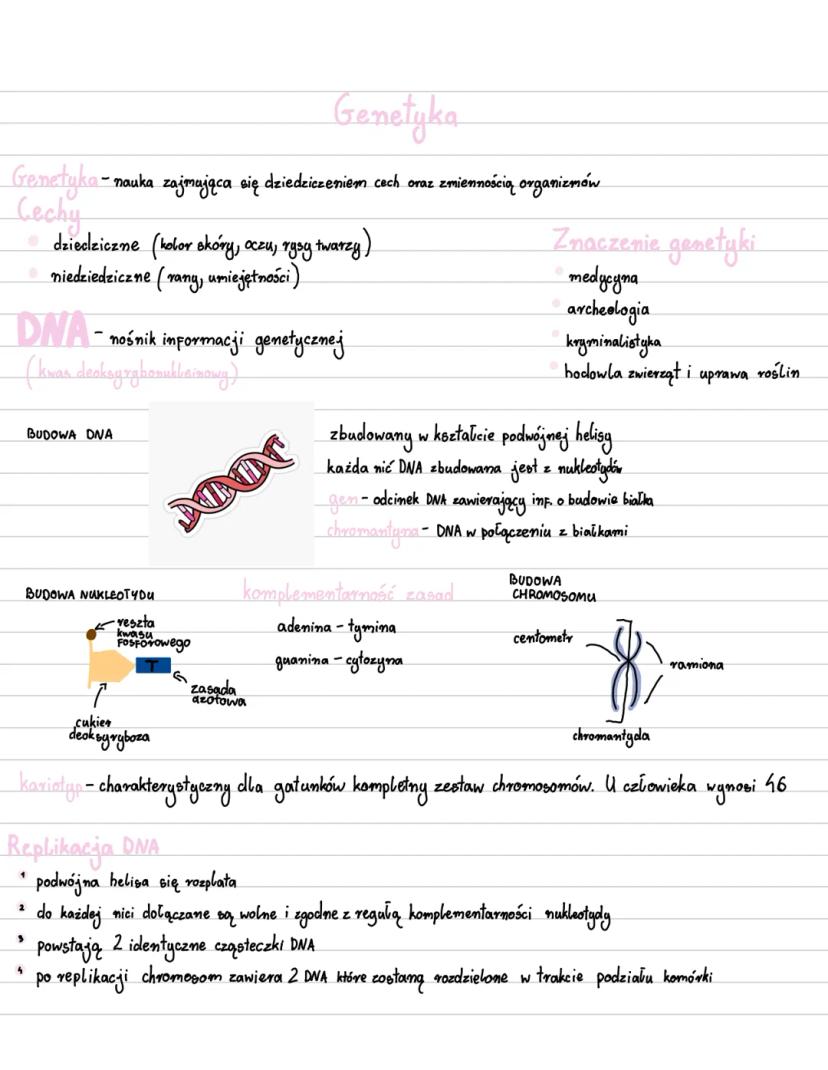 Genetyka
Genetyka - nauka zajmująca się dziedziczeniem cech oraz zmiennością organizmów
Cechy
dziedziczne (kolor skóry, oczu, rysy twarzy)
niedziedziczne (rany, umiejętności)
Znaczenie genetyki
medycyna
archeologia
kryminalistyka
hodowla zwierząt i uprawa roślin
DNA - nośnik informacji genetycznej
(kwas deoksyrybonukleinowy)
BUDOWA DNA
zbudowany w kształcie podwójnej helisy
każda nić DNA zbudowana jest z nukleotydów
gen - odcinek DNA zawierający inf. o budowie białka
chromantyna - DNA w połączeniu z białkami
BUDOWA NUKLEOTYDU
reszta
kwasu
FOSFOROWEGO
T
zasada
azotowa
cukier
deoksyryboza
komplementarność zasad
adenina - tymina
guanina - cytozyna
BUDOWA
CHROMOSOMU
centometr
ramiona
chromantyda
kariotyp - charakterystyczny dla gatunków kompletny zestaw chromosomów. U człowieka wynosi 46
Replikacja DNA
1 podwójna helisa się rozplata
2 do każdej nici dołączane są wolne i zgodne z regułą komplementarności nukleotydy
3 powstają 2 identyczne cząsteczki DNA
4 po replikacji chromosom zawiera 2 DNA które zostaną rozdzielone w trakcie podziału komórki